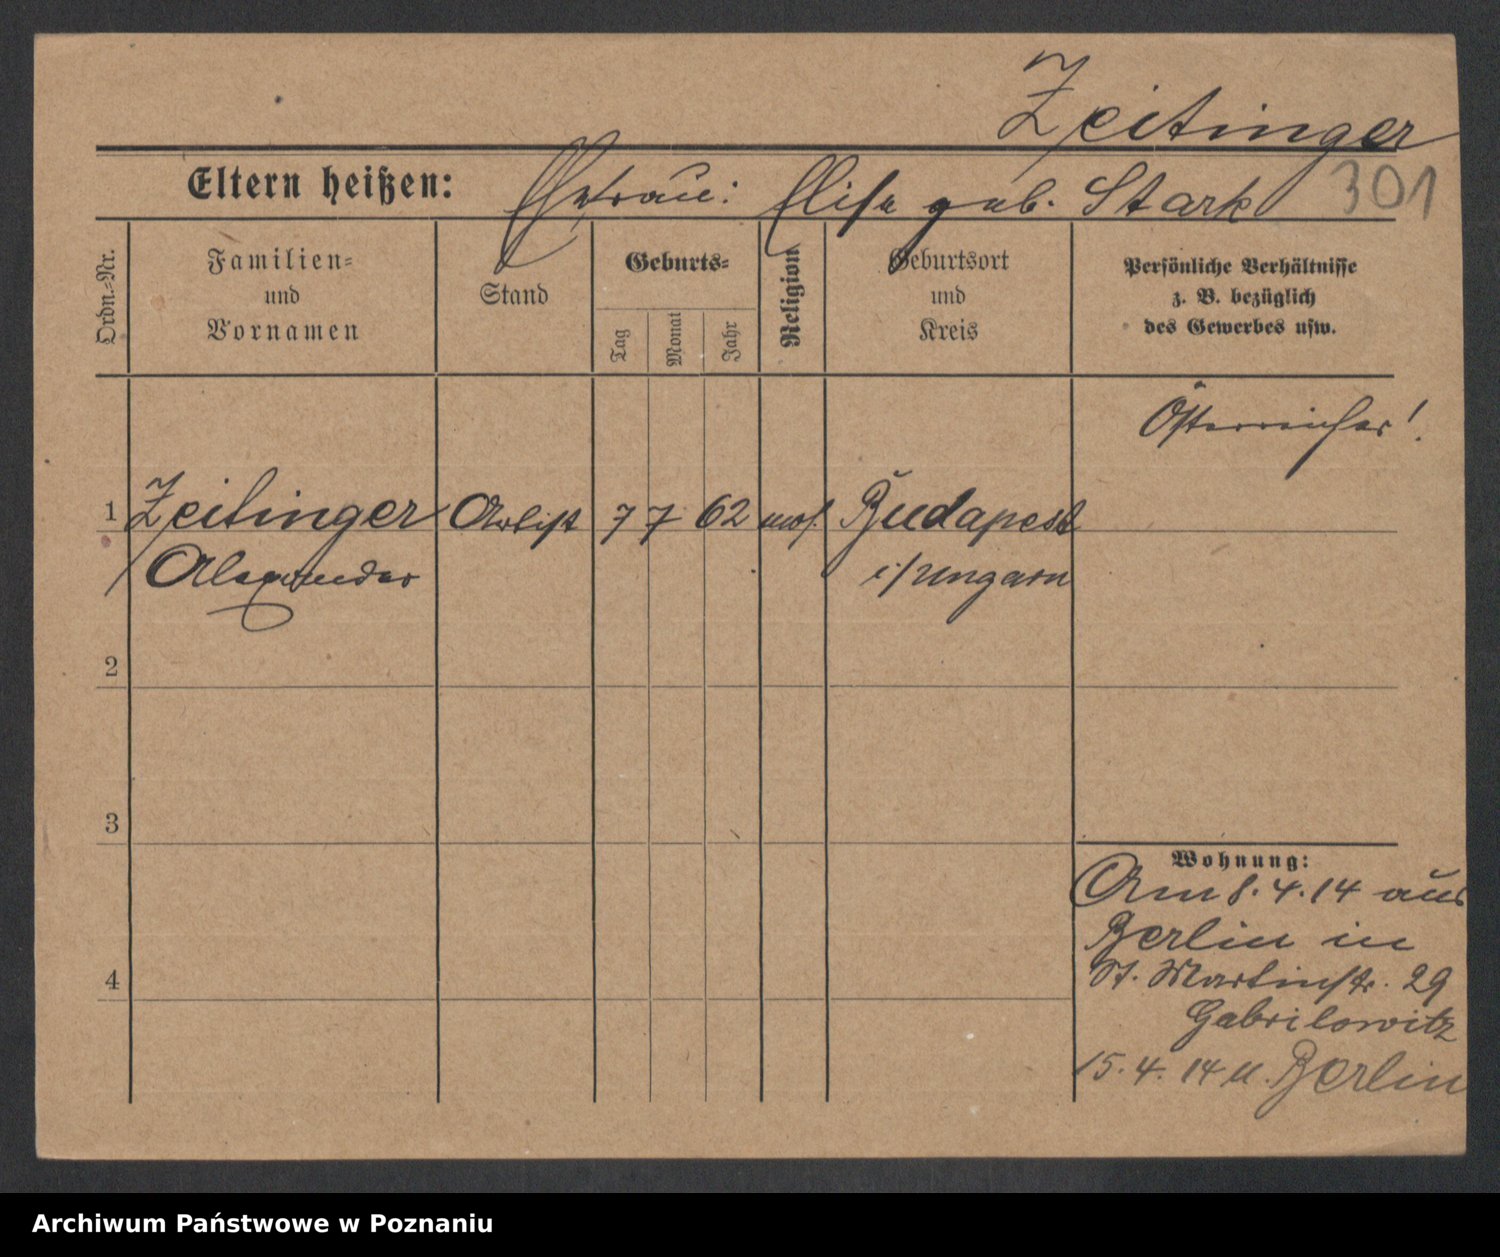 Zeitinger
Eltern heißen: Ehefrau: Elise geb. Stark 301
Ordn.-Nr.
Familien-
und
Vornamen
Stand
Geburts-
Tag
Monat
Jahr
Religion
Geburtsort
und
Kreis
Persönliche Verhältnisse
z. B. bezüglich
des Gewerbes usw.
Österreicher!
1 Zeitinger Artist 7 7 62 mos. Budapest
Alexander i/Ungarn
2
3
Wohnung:
Am 8.4.14 aus
Berlin in
St. Martinstr. 29
Gabrilowitz
4
15.4.14 n. Berlin
Archiwum Państwowe w Poznaniu